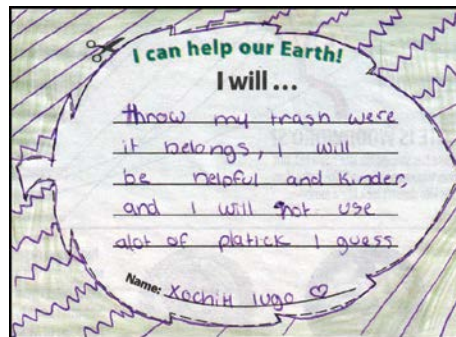 I can help our Earth!
I will ...
throw my trash were
it belongs, I will
be helpful and kinder,
and I will not use
alot of platick I guess
Name: Xochitl lugo